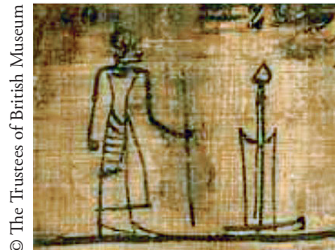 © The Trustees of British Museum